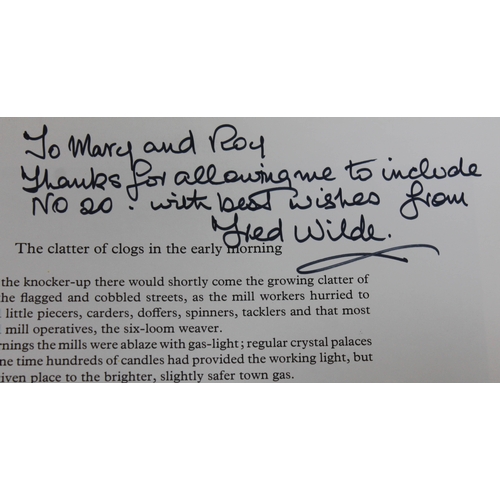 To Mary and Roy
Thanks for allowing me to include
No 20. with best wishes from
Fred Wilde.
The clatter of clogs in the early morning
the knocker-up there would shortly come the growing clatter of
the flagged and cobbled streets, as the mill workers hurried to
little piecers, carders, doffers, spinners, tacklers and that most
mill operatives, the six-loom weaver.
rnings the mills were ablaze with gas-light; regular crystal palaces
ne time hundreds of candles had provided the working light, but
iven place to the brighter, slightly safer town gas.